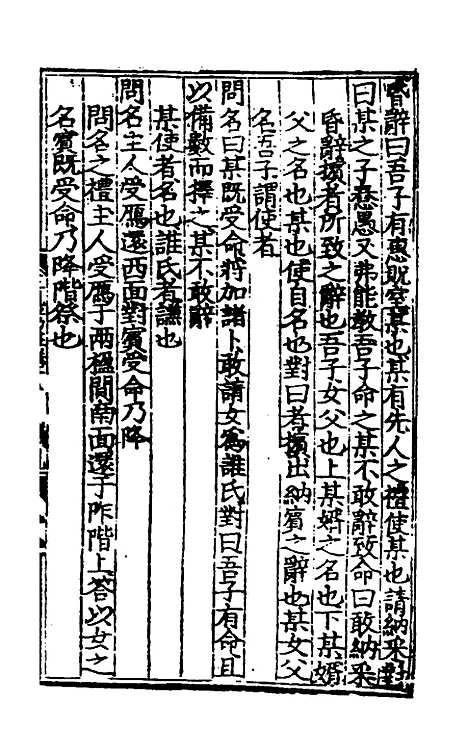 昏辭曰吾子有惠貺室某也某有先人之禮使某也請納采對
曰某之子惷愚又弗能敎吾子命之某不敢辭致命曰敢納采
昏辭擯者所致之辭也吾子女父也上某婿之名也下某婿
父之名也某也使自名也對曰者擯出納賓之辭也某女父
名吾子謂使者
問名曰某既受命將加諸卜敢請女爲誰氏對曰吾子有命且
以備數而擇之某不敢辭
某使者名也誰氏者謙也
問名主人受鴈還西面對賓受命乃降
問名之禮主人受鴈于兩楹間南面還于阼階上答以女之
名賓既受命乃降階